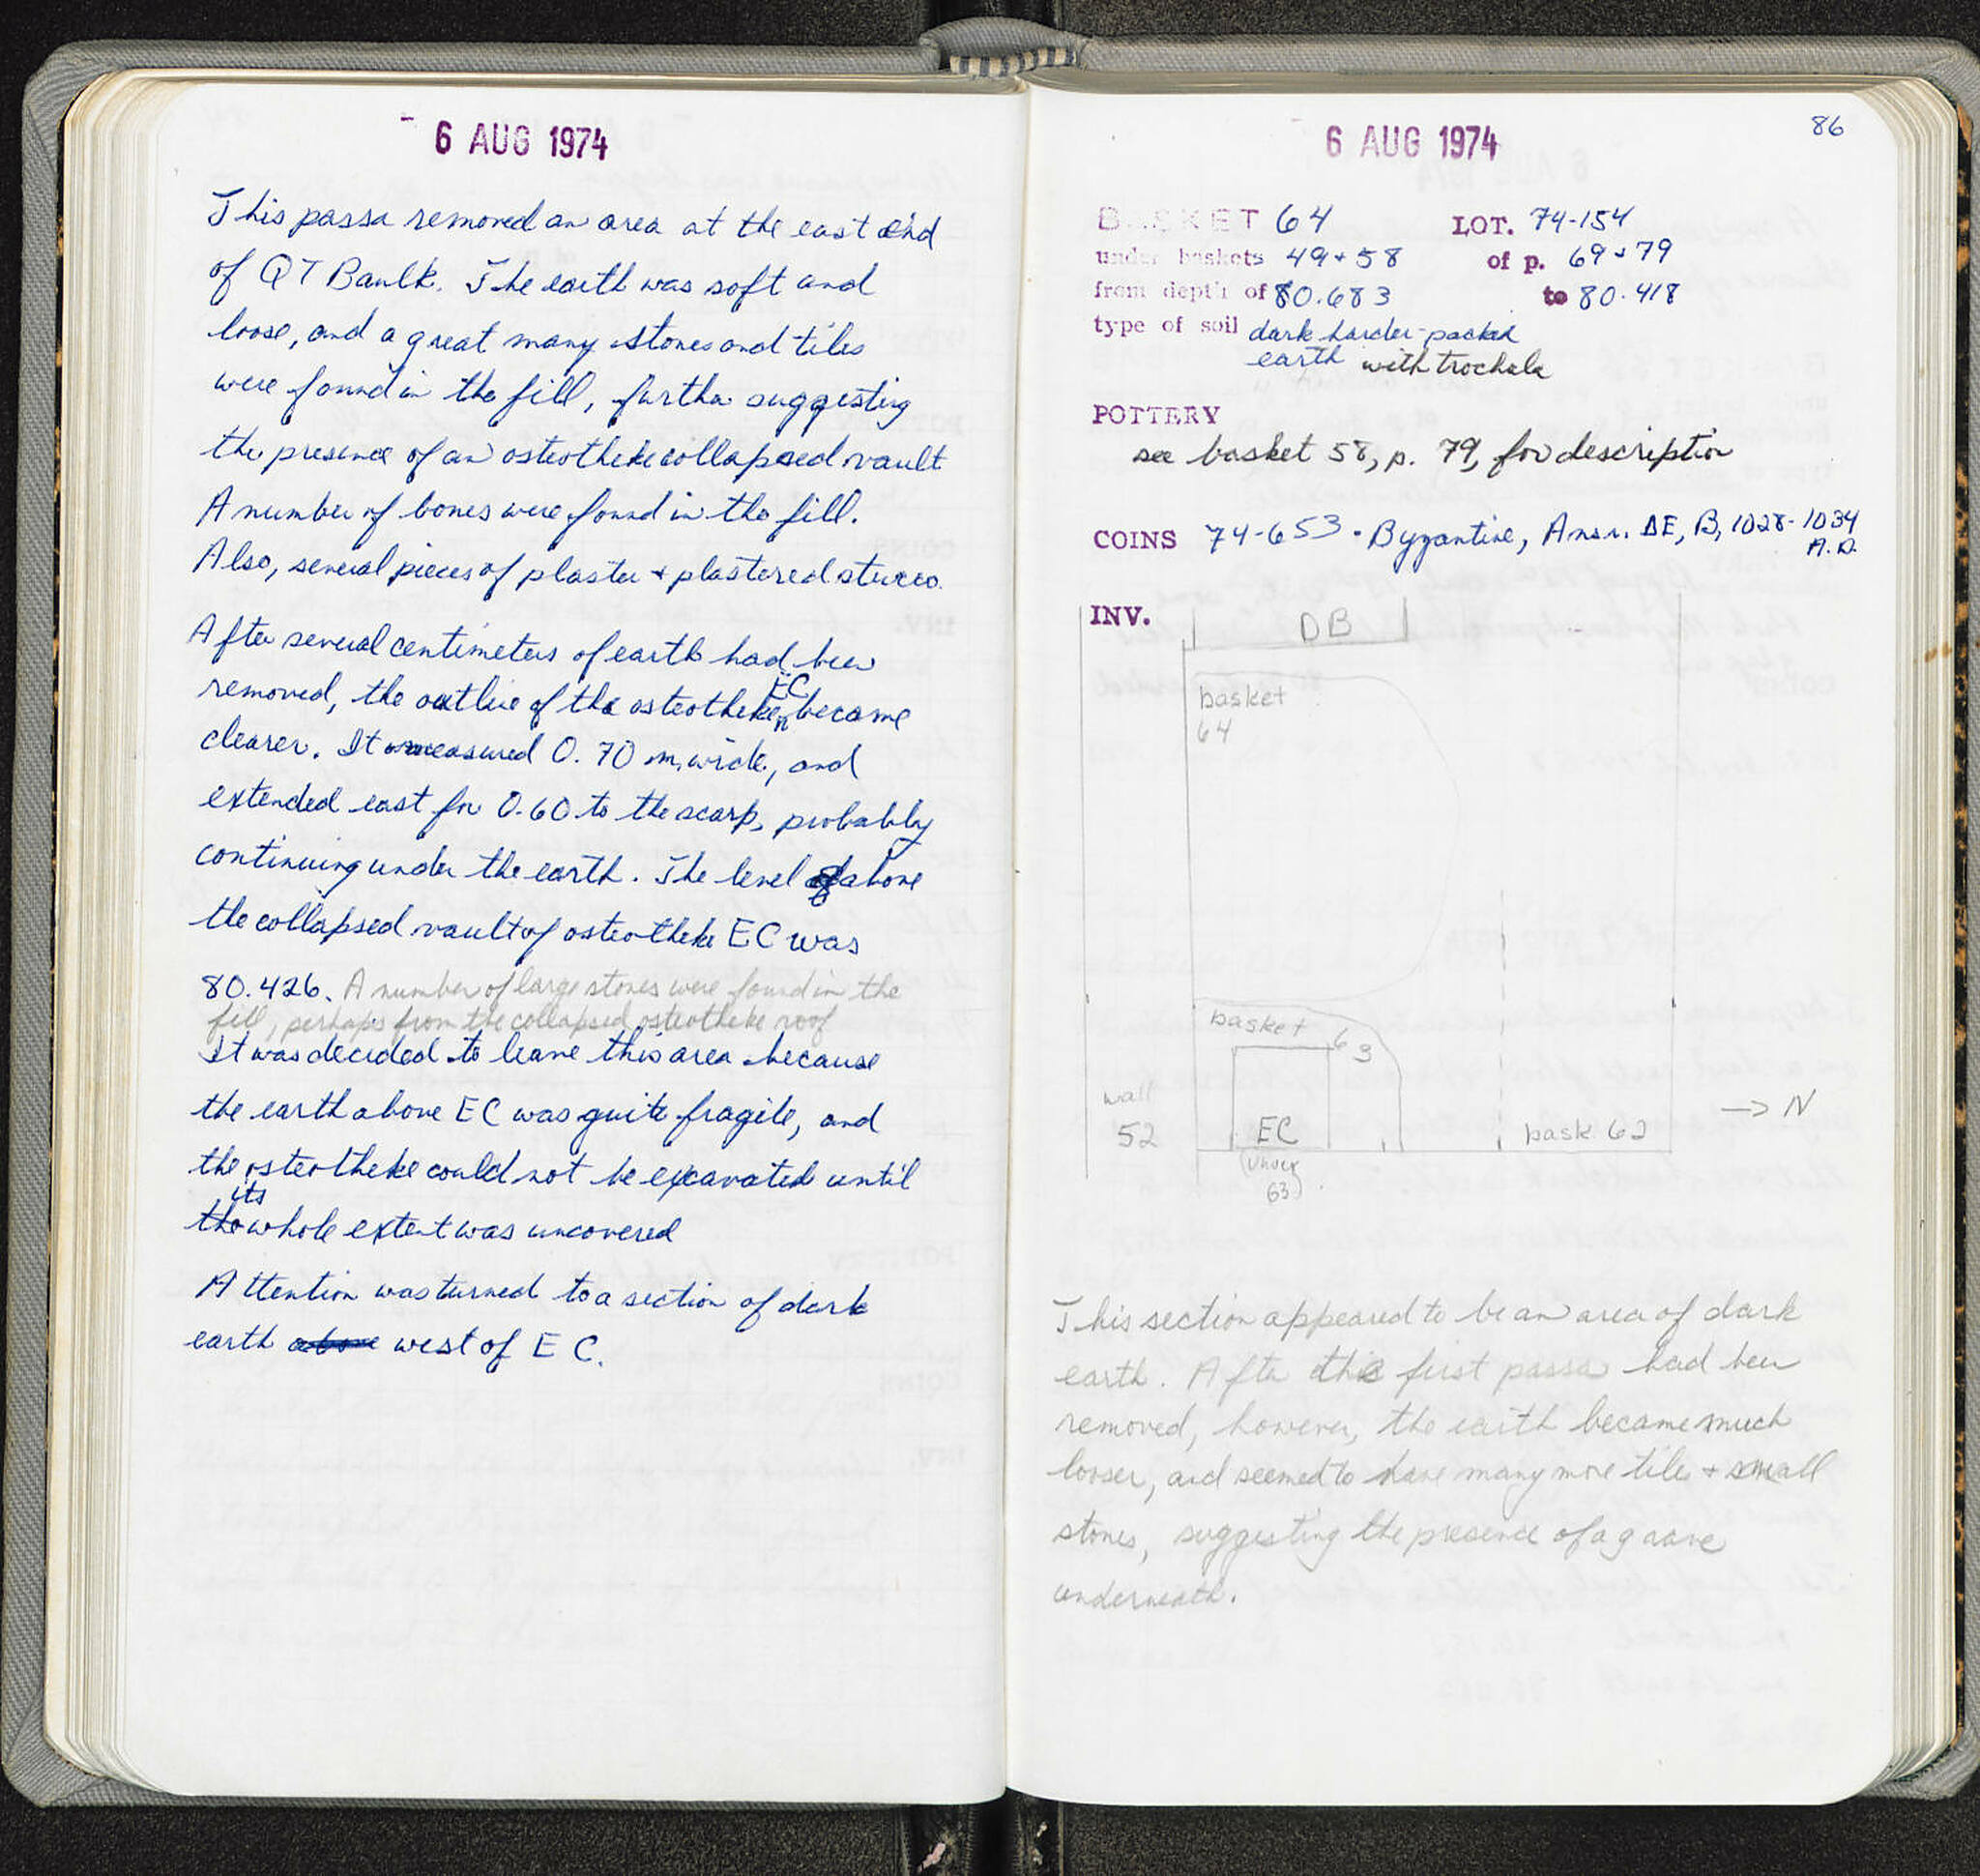 6 AUG 1974
This passa removed an area at the east end
of QT Baulk. The earth was soft and
loose, and a great many stones and tiles
were found in the fill, further suggesting
the presence of an osteotheke collapsed vault
A number of bones were found in the fill.
Also, several pieces of plaster + plastered stucco.
After several centimeters of earth had been
EC
removed, the outline of the osteotheke became
clearer. It measured 0.70 m. wide, and
extended east for 0.60 to the scarp, probably
continuing under the earth. The level above
the collapsed vault of osteotheke EC was
80.426. A number of large stones were found in the
fill, perhaps from the collapsed osteotheke roof
It was decided to leave this area because
the earth above EC was quite fragile, and
the osteotheke could not be excavated until
its
the whole extent was uncovered
Attention was turned to a section of dark
earth above west of EC.
6 AUG 1974
86
BASKET 64 LOT. 74-154
under baskets 49 + 58 of p. 69 + 79
from depth of 80.683 to 80.418
type of soil dark harder-packed
earth with trochala
POTTERY
see basket 58, p. 79, for description
COINS 74-653 · Byzantine, Anon. AE, B, 1028-1034
A.D.
INV.
DB
basket
64
basket 63
wall
52
EC
(under
63)
bask 62
→ N
This section appeared to be an area of dark
earth. After this first passa had been
removed, however, the earth became much
looser, and seemed to have many more tiles + small
stones, suggesting the presence of a grave
underneath.